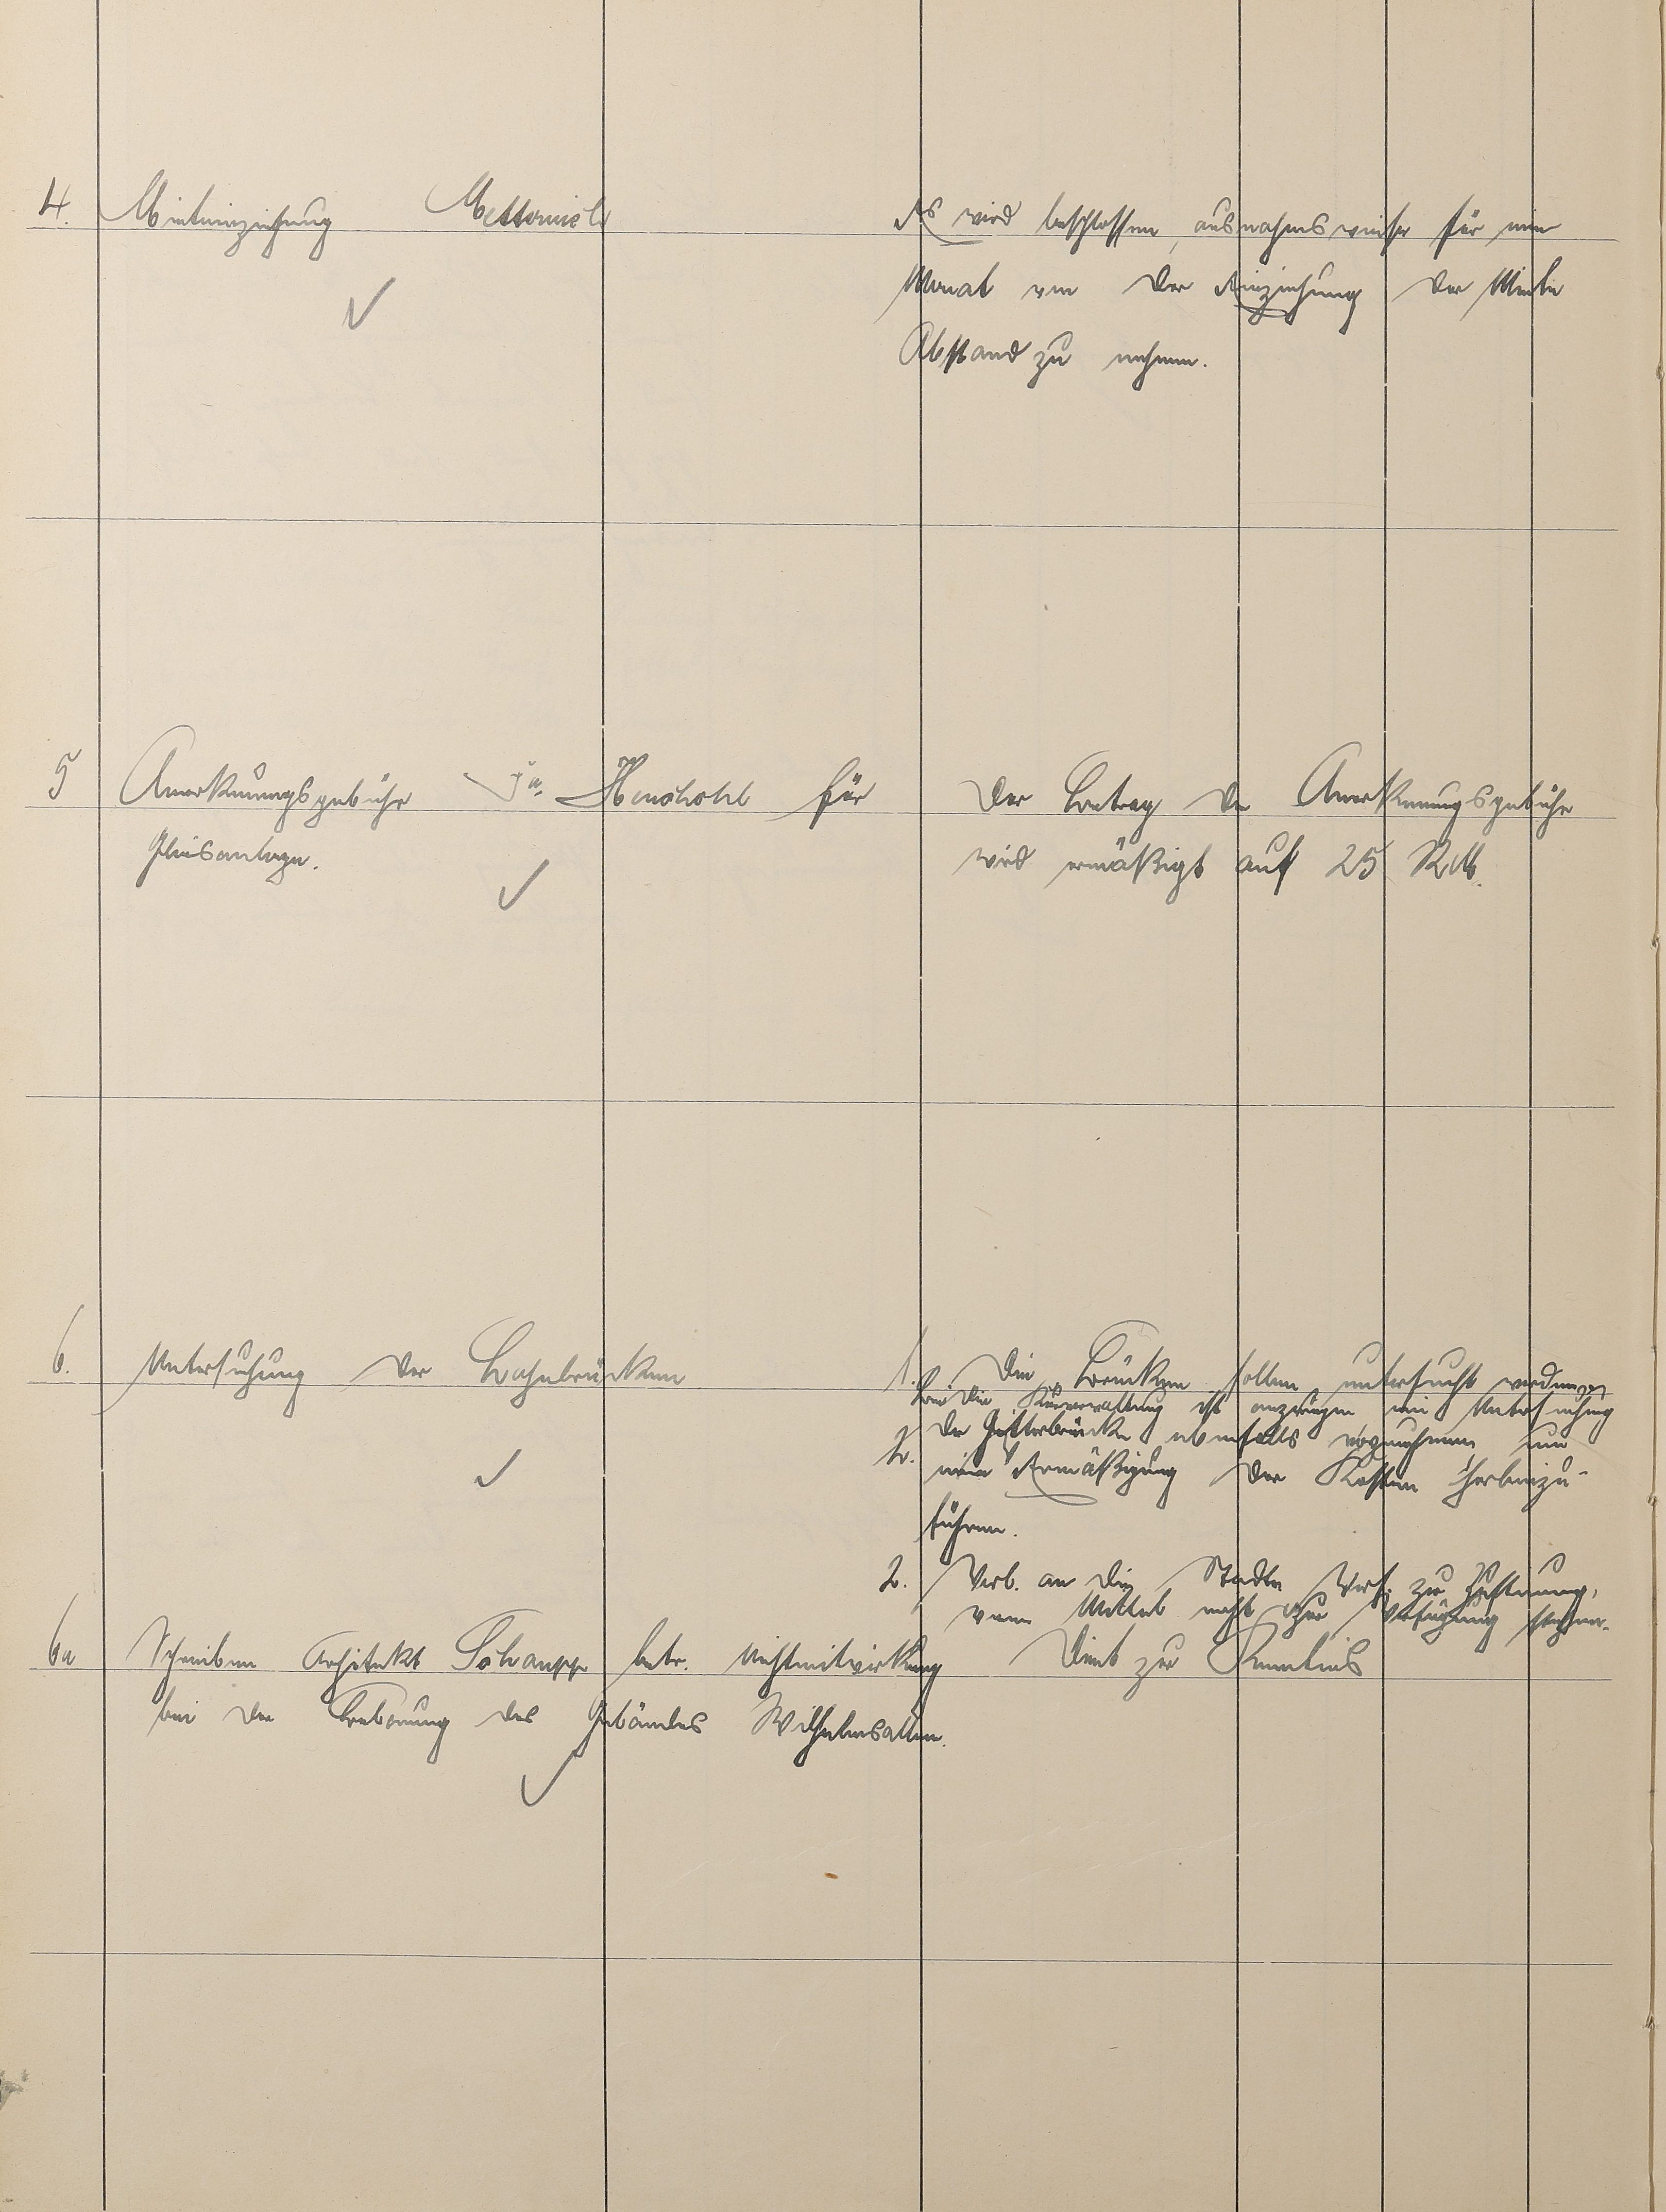 4. Mieteinziehung Metternich
Es wird beschlossen, ausnahmsweise für ein
Monat von der Einziehung der Miete
Abstand zu nehmen.
5 Anerkennungsgebühr Fa. für
Gleisanlage.
Der Betrag der Anerkennungsgebühr
wird ermäßigt auf 25 RM.
6. Untersuchung der Lahnbrücken
1. Die Brücken sollen untersucht werden
Bei die Kurverwaltung ist anzuregen, eine Untersuchung
der Gitterbrücke ebenfalls vorzunehmen um
2. eine Ermäßigung der Kosten herbeizu-
führen.
2. Vorl. an die Stadtv. Vers. zur Zustimmung,
wenn Mittel nicht zur Verfügung stehen.
6a Schreiben Architekt Schaupp betr. Nichtmitwirkung
bei der Bebauung des Gebäudes Wilhelmsallee.
Dient zur Kenntnis